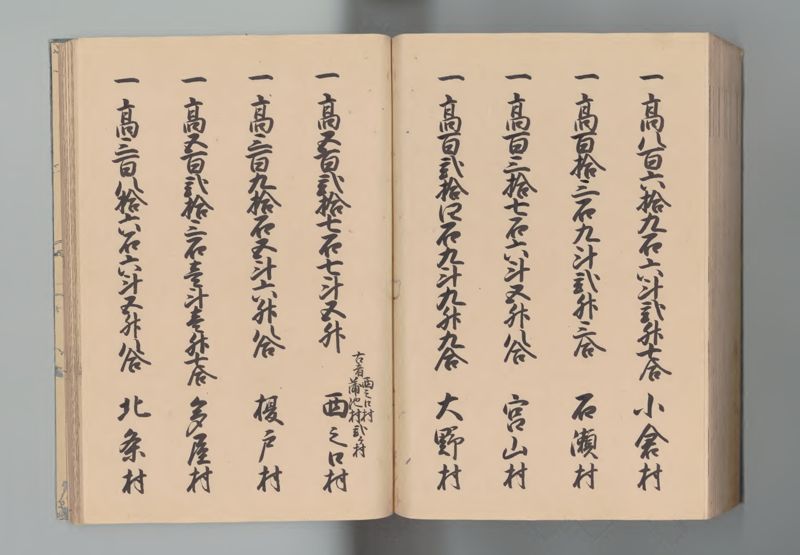 一 高八百六拾九石六斗弐升七合 小倉村
一 高百拾三石九斗弐升三合 石瀬村
一 高百三拾七石六斗五升八合 宮山村
一 高百弐拾四石九斗九升九合 大野村
一 高五百弐拾七石七斗五升 西之口村
古者西之口村
蒲池村弐ヶ村
一 高三百九拾石五斗六升八合 榎戸村
一 高五百弐拾三石壱斗壱升七合 多屋村
一 高三百八拾六石六斗五升八合 北条村